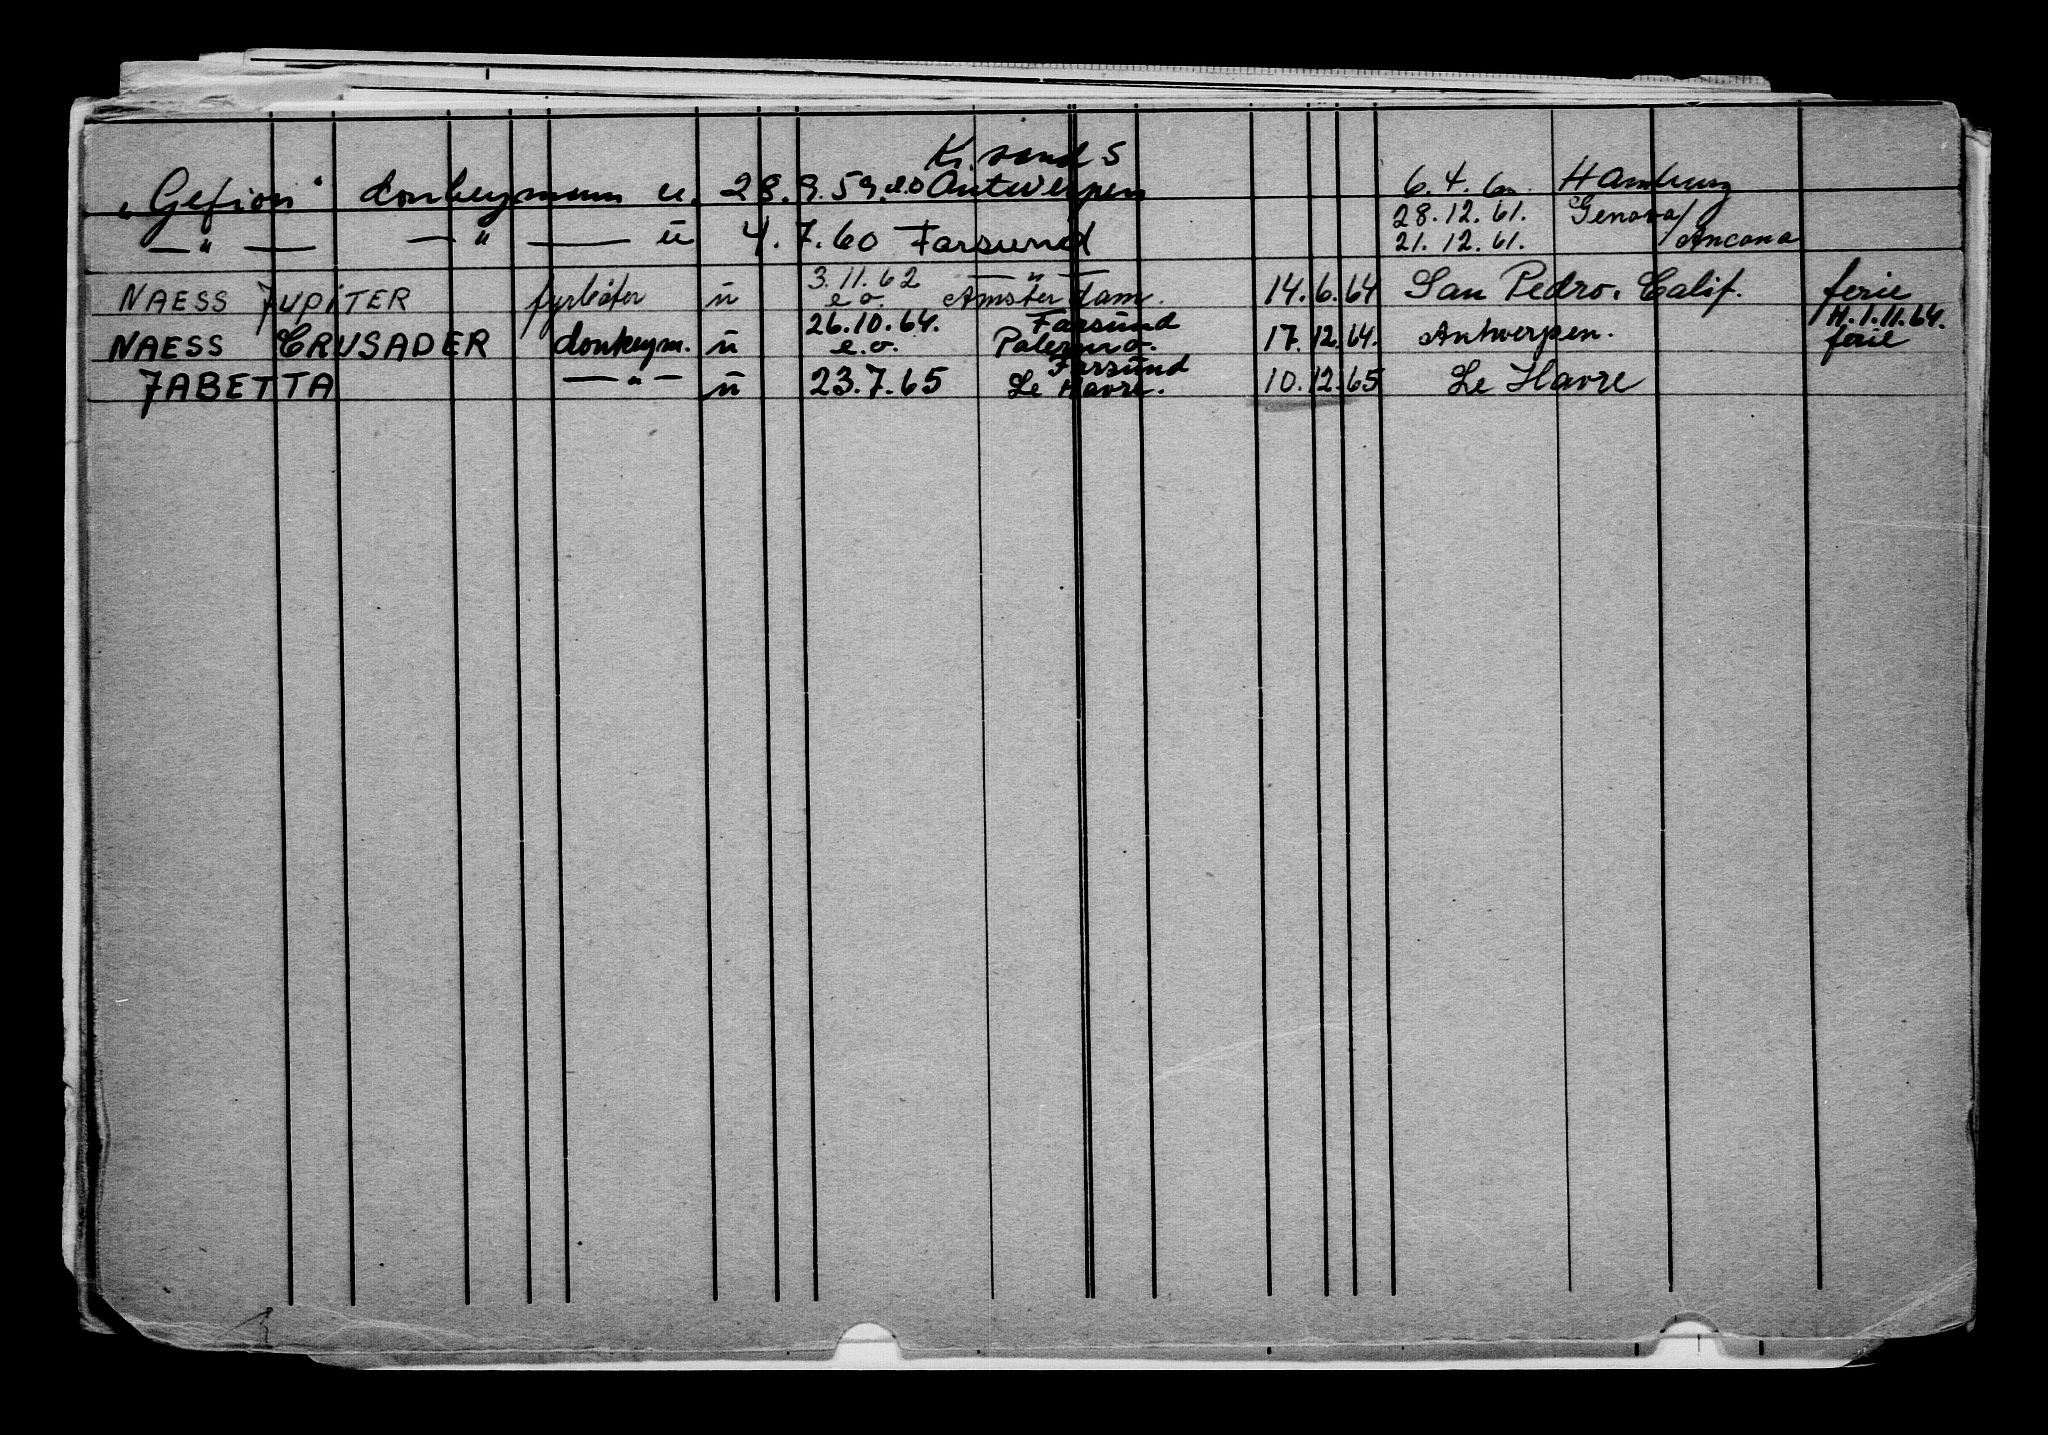 K. sand S
"Gefion" donkeymann u. 28.9.59. e.o Antwerpen 6.4.60. Hamburg
28.12.61. Genova/
— " — — " — ü 4.7.60 Farsund 21.12.61. Ancona
3.11.62 — " —
NAESS JUPITER fyrbøter ü e.o. Amsterdam. 14.6.64 San Pedro. Calif. ferie
26.10.64. Farsund H.1.11.64.
NAESS CRUSADER donkeym. ü e.o. Palermo. 17.12.64. Antwerpen. ferie
Farsund
JABETTA — " — ü 23.7.65 Le Havre. 10.12.65 Le Havre